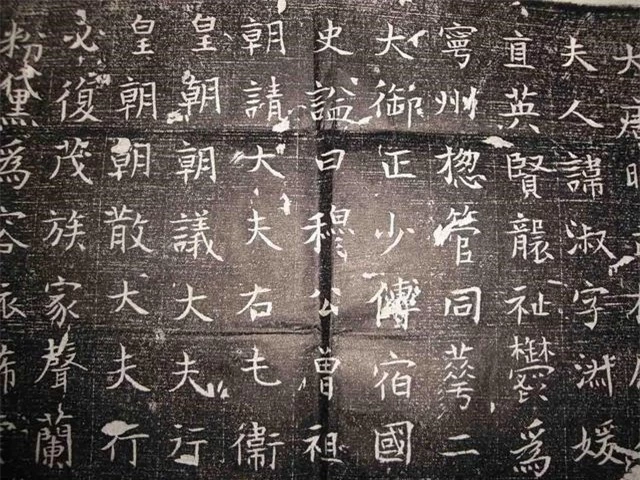 大
夫人諱淑字媛
宜英賢襲祉鬱爲
寧州揔管同華二
大御正少傅宿國
史諡曰穆公曾祖
朝請大夫右屯衛
皇朝朝議大夫行
皇朝朝散大夫行
必復茂族家聲蘭
粉黛爲容服飾